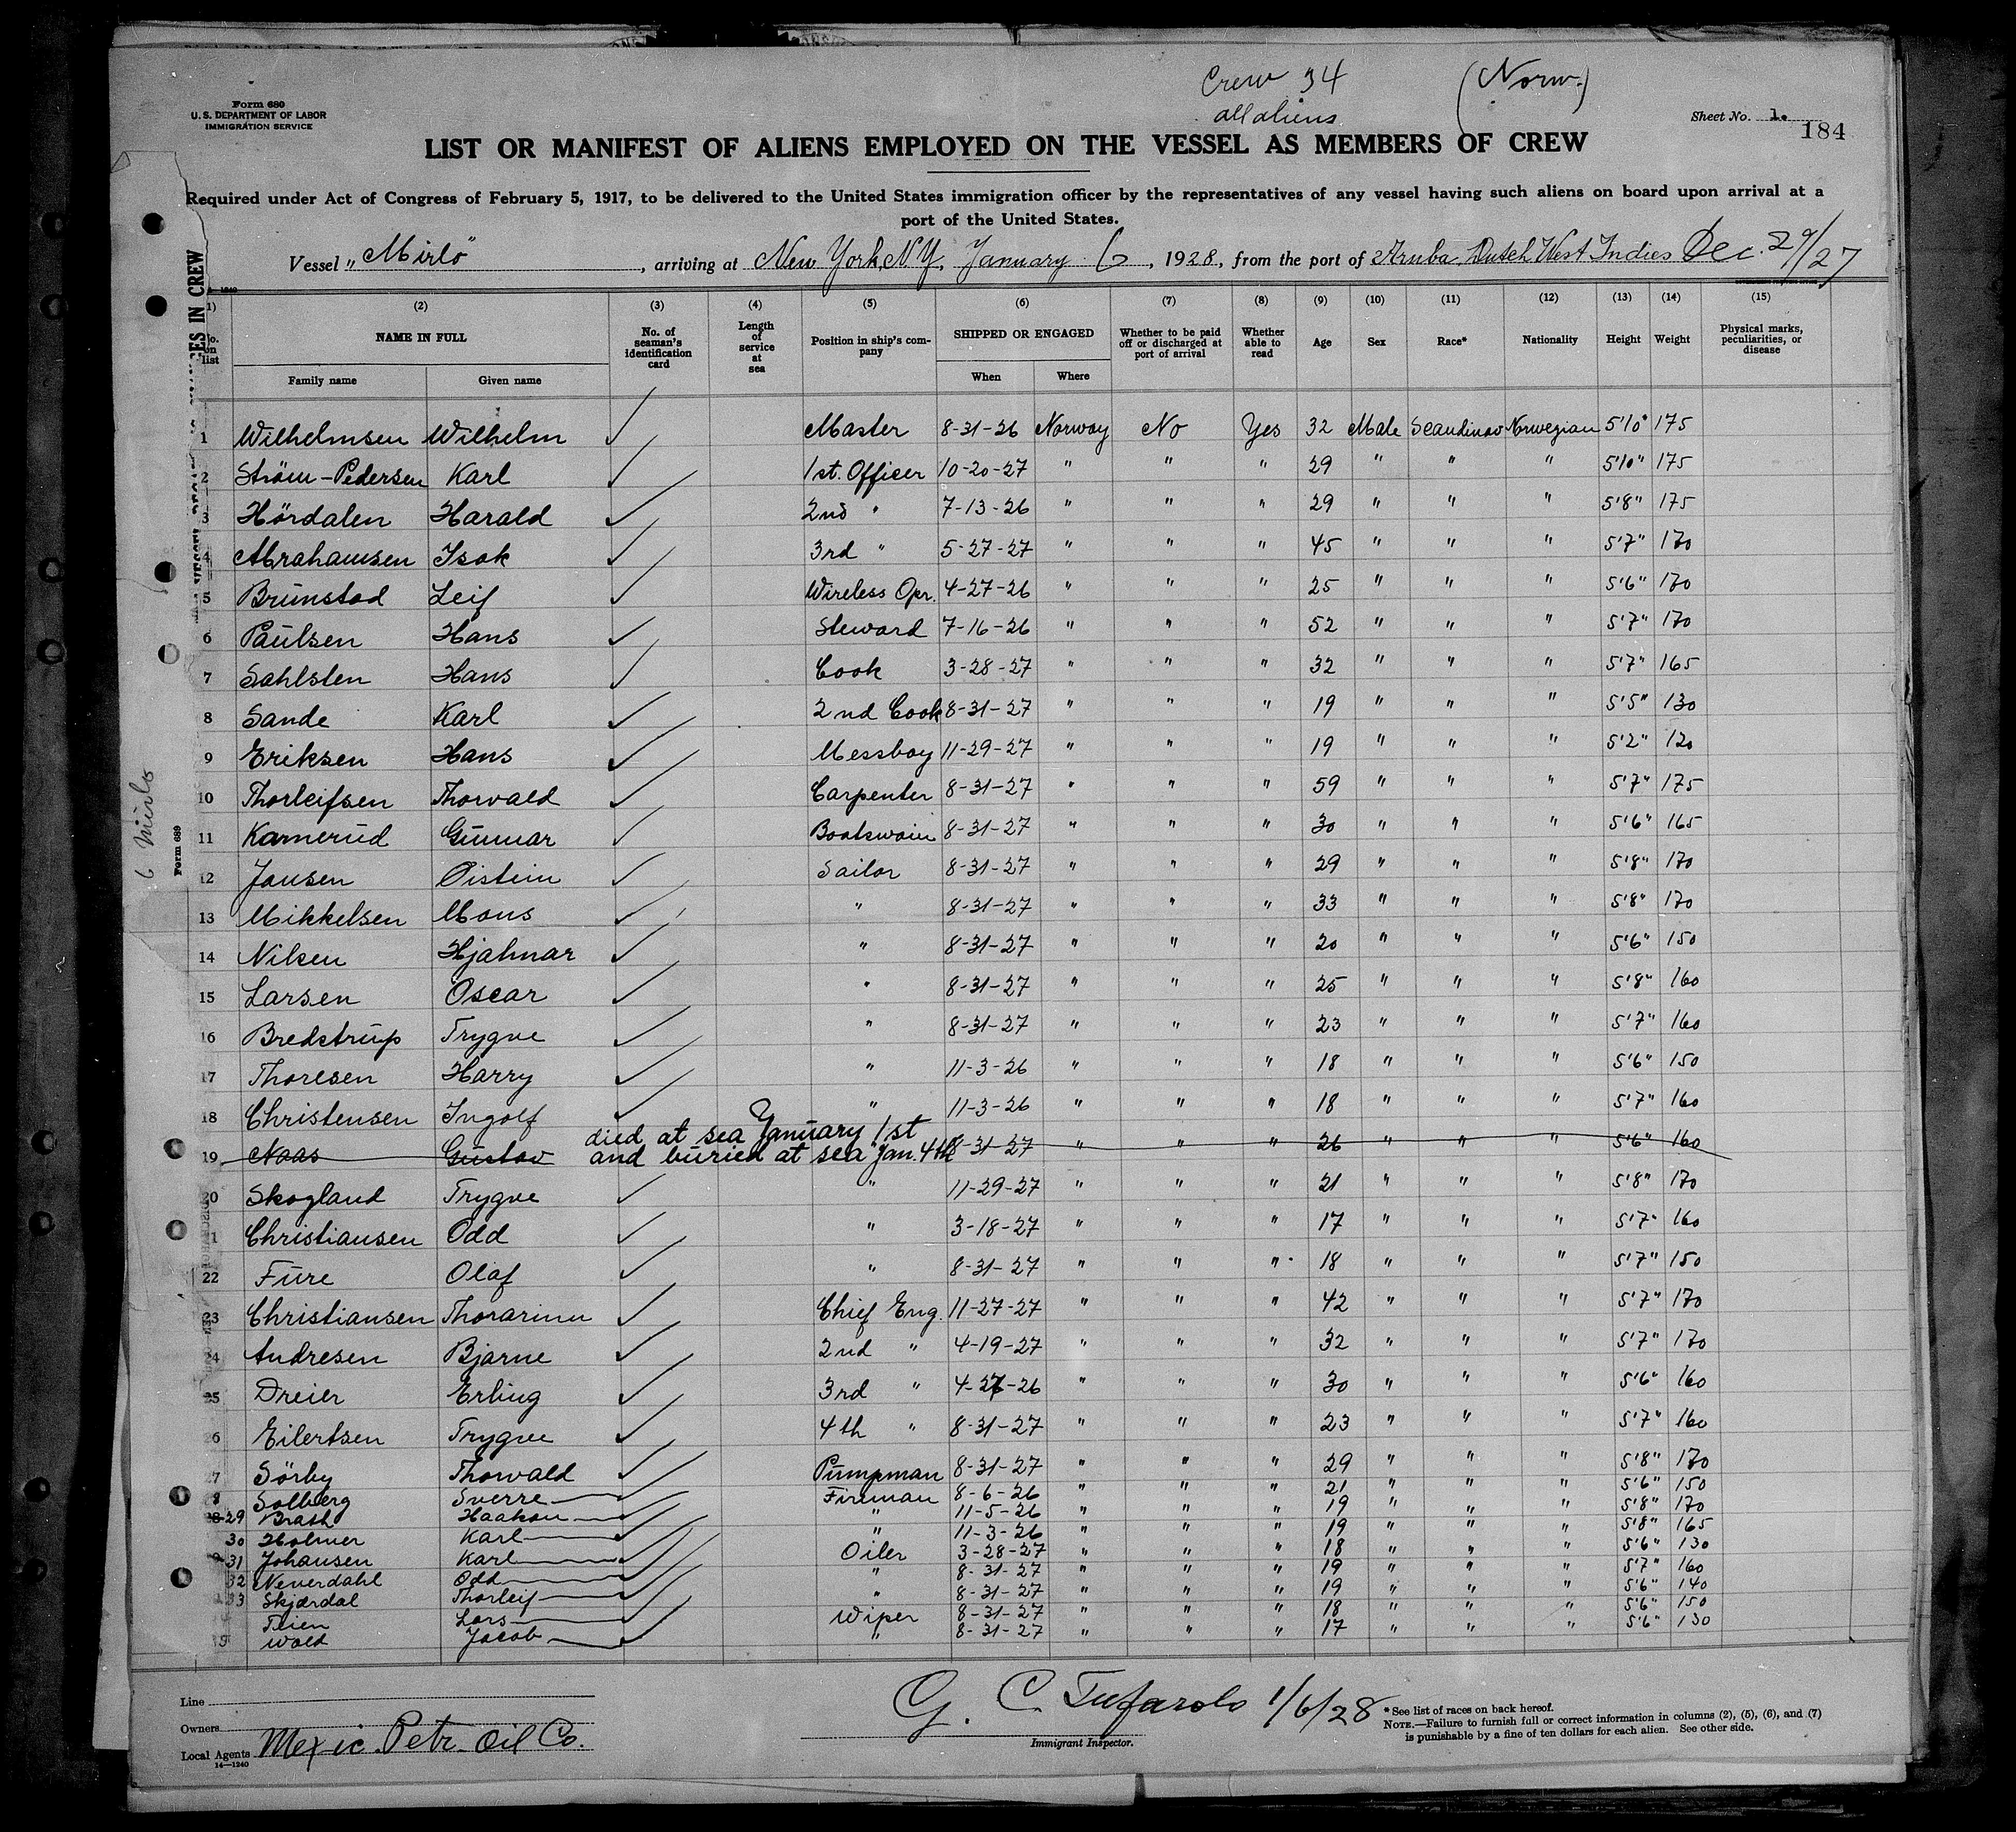 Crew 34 (Norw.)
all aliens
Form 680
U. S. DEPARTMENT OF LABOR
IMMIGRATION SERVICE
Sheet No. 1.
184
LIST OR MANIFEST OF ALIENS EMPLOYED ON THE VESSEL AS MEMBERS OF CREW
Required under Act of Congress of February 5, 1917, to be delivered to the United States immigration officer by the representatives of any vessel having such aliens on board upon arrival at a
port of the United States.
Vessel „Mirlo", arriving at New York, N.Y. January 6, 1928, from the port of Aruba, Dutch West Indies Dec. 29/27
(1) (2) (3) (4) (5) (6) (7) (8) (9) (10) (11) (12) (13) (14) (15)
No. on list NAME IN FULL No. of seaman's identification card Length of service at sea Position in ship's company SHIPPED OR ENGAGED Whether to be paid off or discharged at port of arrival Whether able to read Age Sex Race* Nationality Height Weight Physical marks, peculiarities, or disease
Family name Given name When Where
1 Wilhelmsen Wilhelm Master 8-31-26 Norway No Yes 32 Male Scandinav Norwegian 5'10" 175
2 Ström-Pedersen Karl 1st. Officer 10-20-27 " " " 29 " " " 5'10" 175
3 Hördalen Harald 2nd " 7-13-26 " " " 29 " " " 5'8" 175
4 Abrahamsen Isak 3rd " 5-27-27 " " " 45 " " " 5'7" 170
5 Brunstad Leif Wireless Opr. 4-27-26 " " " 25 " " " 5'6" 170
6 Paulsen Hans Steward 7-16-26 " " " 52 " " " 5'7" 170
7 Sahlsten Hans Cook 3-28-27 " " " 32 " " " 5'7" 165
8 Sande Karl 2nd Cook 8-31-27 " " " 19 " " " 5'5" 130
9 Eriksen Hans Messboy 11-29-27 " " " 19 " " " 5'2" 120
10 Thorleifsen Thorvald Carpenter 8-31-27 " " " 59 " " " 5'7" 175
11 Kamerud Gunnar Boatswain 8-31-27 " " " 30 " " " 5'6" 165
12 Jansen Öistein Sailor 8-31-27 " " " 29 " " " 5'8" 170
13 Mikkelsen Mons " 8-31-27 " " " 33 " " " 5'8" 170
14 Nilsen Hjalmar " 8-31-27 " " " 20 " " " 5'6" 150
15 Larsen Oscar " 8-31-27 " " " 25 " " " 5'8" 160
16 Bredstrup Trygve " 8-31-27 " " " 23 " " " 5'7" 160
17 Thoresen Harry " 11-3-26 " " " 18 " " " 5'6" 150
18 Christensen Ingolf " 11-3-26 " " " 18 " " " 5'7" 160
died at sea January 1st
19 Naas Gustav and buried at sea Jan. 4th 8-31-27 " " " 26 " " " 5'6" 160
20 Skogland Trygve " 11-29-27 " " " 21 " " " 5'8" 170
1 Christiansen Odd " 3-18-27 " " " 17 " " " 5'7" 160
22 Fure Olaf " 8-31-27 " " " 18 " " " 5'7" 150
23 Christiansen Thorarinn Chief Eng. 11-27-27 " " " 42 " " " 5'7" 170
24 Andresen Bjarne 2nd " 4-19-27 " " " 32 " " " 5'7" 170
25 Dreier Erling 3rd " 4-27-26 " " " 30 " " " 5'6" 160
26 Eilertsen Trygve 4th " 8-31-27 " " " 23 " " " 5'7" 160
27 Sörby Thorvald Pumpman 8-31-27 " " " 29 " " " 5'8" 170
8 Solberg Sverre Fireman 8-6-26 " " " 21 " " " 5'6" 150
29 Brath Haakon " 11-5-26 " " " 19 " " " 5'8" 170
30 Holmer Karl " 11-3-26 " " " 19 " " " 5'8" 165
31 Johansen Karl Oiler 3-28-27 " " " 18 " " " 5'6" 130
32 Neverdahl Odd " 8-31-27 " " " 19 " " " 5'7" 160
33 Skjærdal Thorleif " 8-31-27 " " " 19 " " " 5'6" 140
Teien Lars Wiper 8-31-27 " " " 18 " " " 5'6" 150
Wold Jacob " 8-31-27 " " " 17 " " " 5'6" 130
6 Mirlo
Form 689
Line
Owners
Local Agents Mexic. Petr. Oil Co.
14—1240
G. C. Tufarolo 1/6/28
Immigrant Inspector.
* See list of races on back hereof.
NOTE.—Failure to furnish full or correct information in columns (2), (5), (6), and (7)
is punishable by a fine of ten dollars for each alien. See other side.